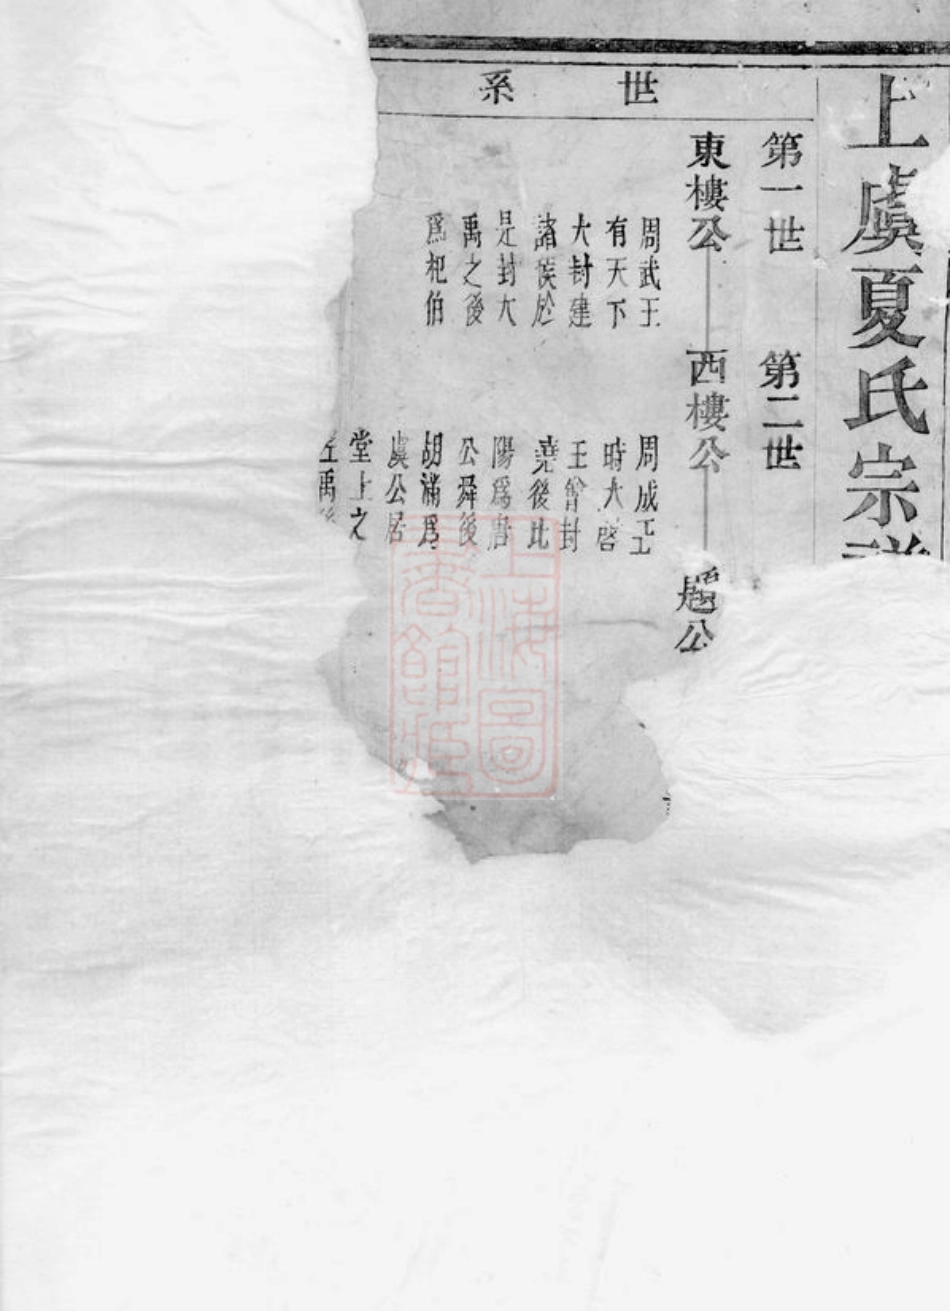 上虞夏氏宗譜
世系
第一世
第二世
東樓公
西樓公
公
周武王
有天下
大封建
諸侯於
是封大
禹之後
爲杞伯
周成王
時大啓
王會封
堯後比
陽爲唐
公舜後
胡滿爲
虞公居
堂上之
左禹後
上海圖
書館藏